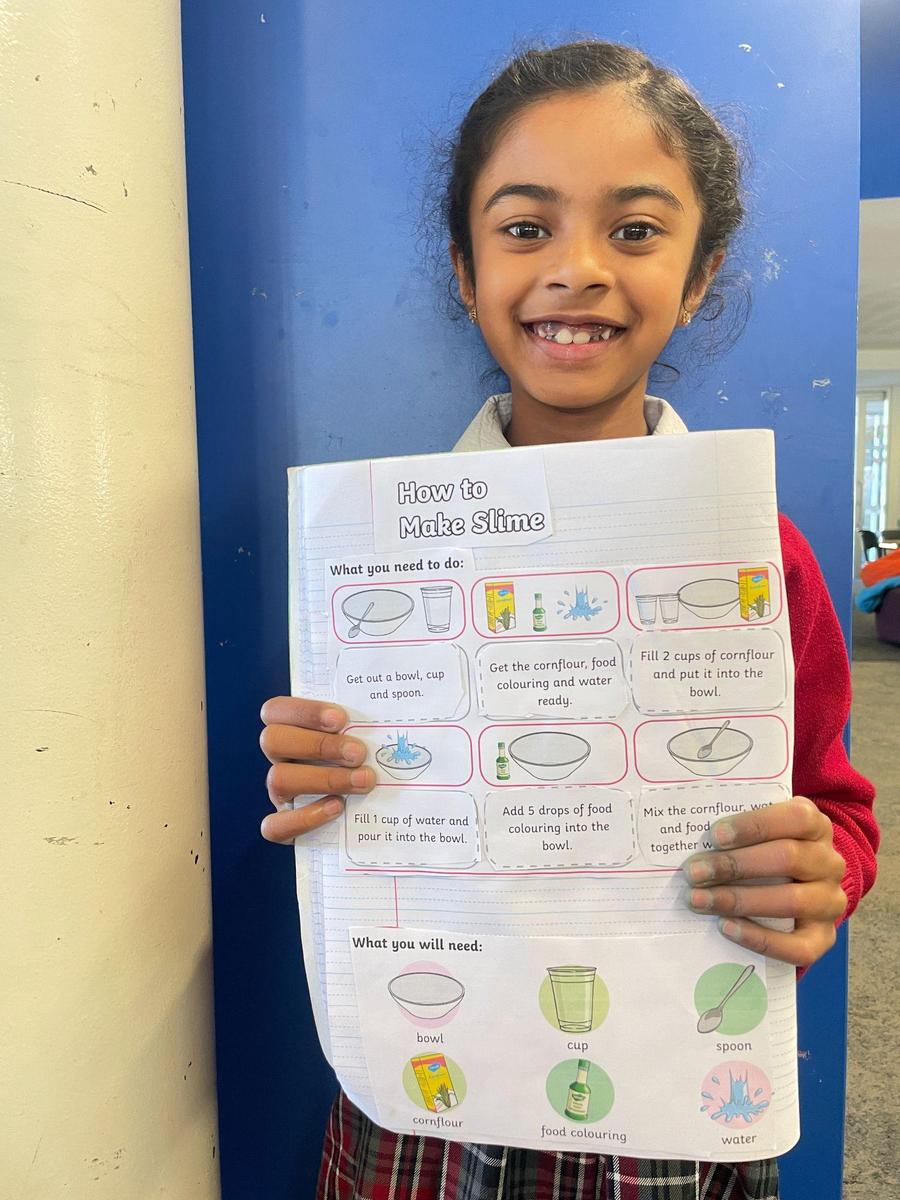 How to
Make Slime
What you need to do:
Get out a bowl, cup
and spoon.
Get the cornflour, food
colouring and water
ready.
Fill 2 cups of cornflour
and put it into the
bowl.
Fill 1 cup of water and
pour it into the bowl.
Add 5 drops of food
colouring into the
bowl.
Mix the cornflour,
and food
together
What you will need:
bowl
cup
spoon
cornflour
food colouring
water